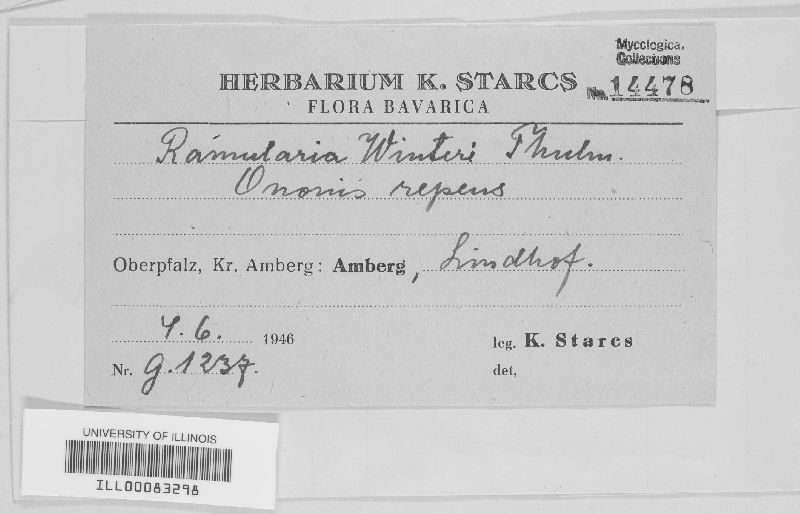 Mycological
Collections
No. 14478
HERBARIUM K. STARCS
FLORA BAVARICA
Ramularia Winteri Thulm.
Ononis repens
Oberpfalz, Kr. Amberg: Amberg, Lindhof.
4. 6. 1946
leg. K. Starcs
Nr. g. 1237.
det,
UNIVERSITY OF ILLINOIS
ILL00083298